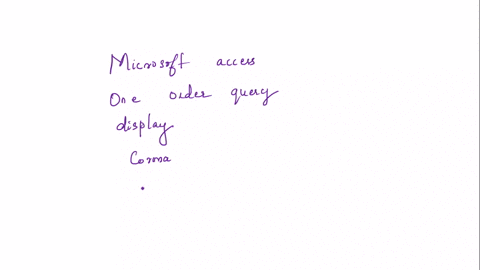 Microsoft access
One order query
display
Corona